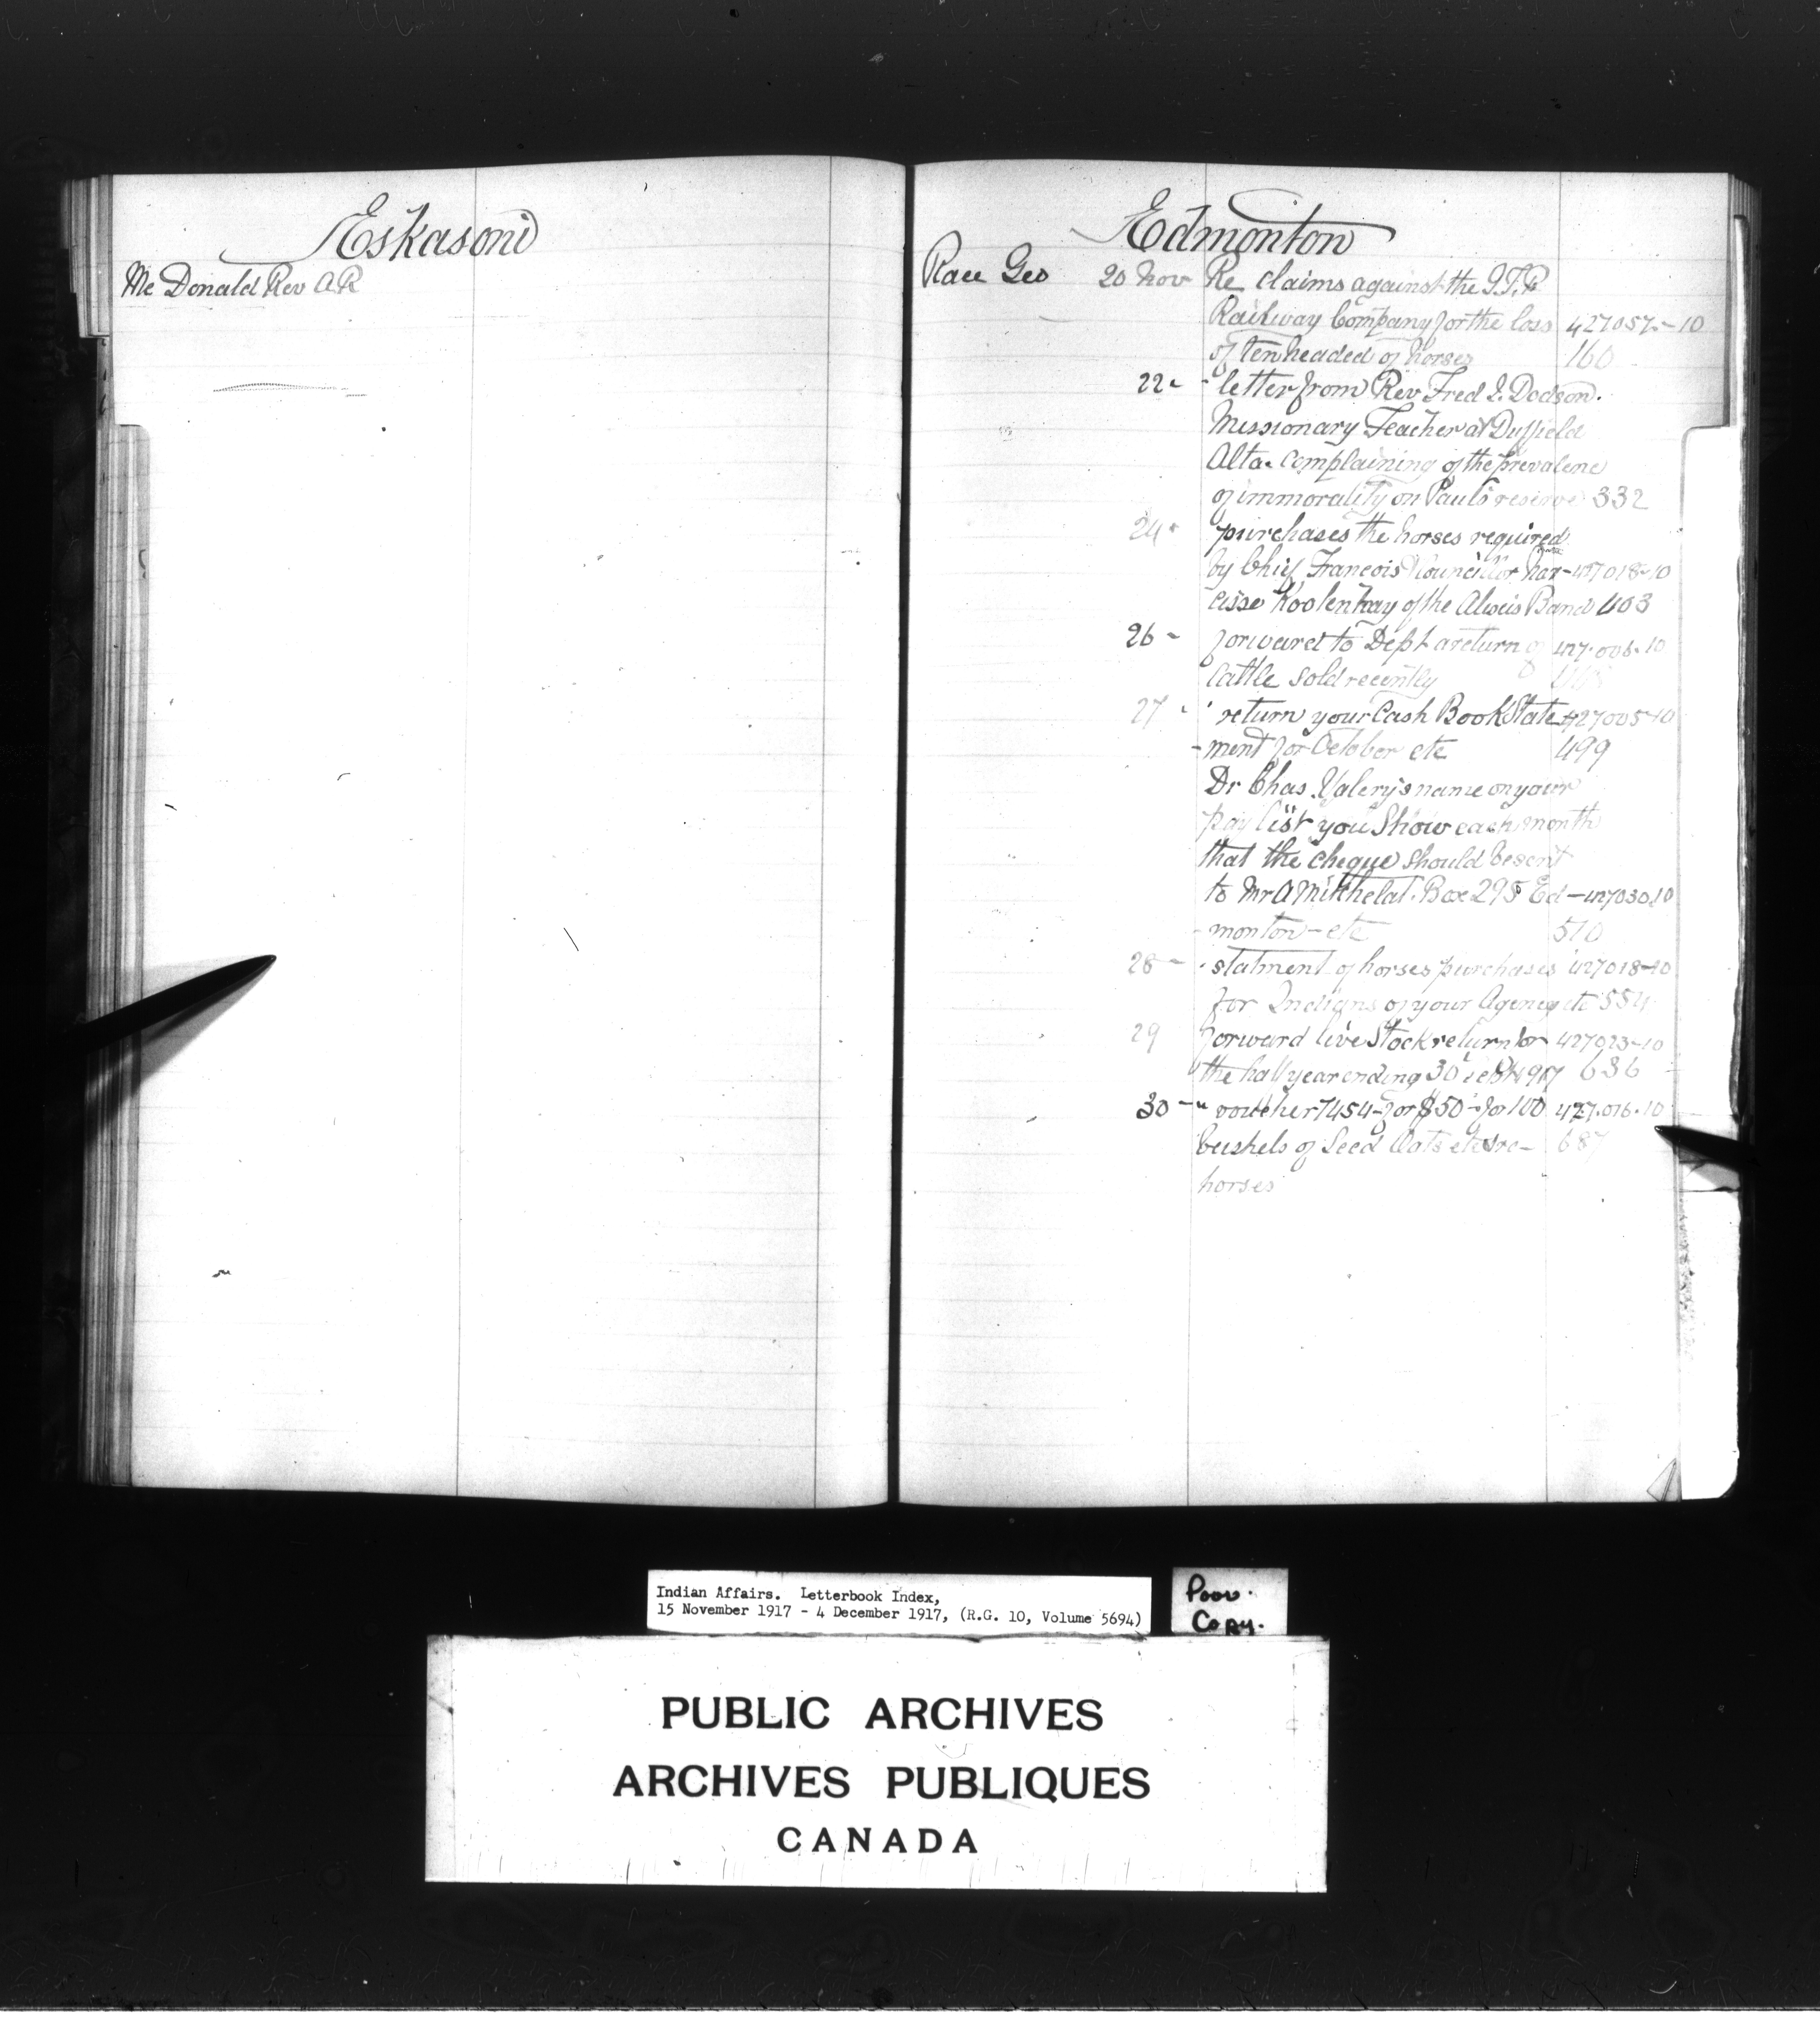 Eskasoni
Mc Donald Rev A R
Edmonton
Race Geo 20 Nov Re claims against the G.T.P.
Railway Company for the loss 427057-10
of ten headed of horses 160
22 " letter from Rev Fred J. Dodson.
Missionary Teacher at Duffield
Alta. complaining of the prevalene
of immorality on Paul's reserve 332
24 " purchases the horses required
by Chief Francois Councillor Nar- 427018-10
cisse of the Alexis Band 403
26 " forward to Dept a return of 427.006.10
Cattle sold recently
27 " return your Cash Book State 427005-10
-ment for October etc 499
Dr Chas. Valery's name on your
pay list you Show each month
that the cheque should be sent
to Mr A Box 295 Ed- 427030.10
monton - etc 510
28 " statment of horses purchases 427018-10
for Indians of your Agency etc 554
29 forward live Stock return for 427023-10
the half year ending 30 Sept 1917 636
30 - " voucher 7454 - for $50 - for 100 427.016.10
bushels of Seed Oats etc 687
horses
Indian Affairs. Letterbook Index,
15 November 1917 - 4 December 1917, (R.G. 10, Volume 5694)
Poor.
Copy.
PUBLIC ARCHIVES
ARCHIVES PUBLIQUES
CANADA